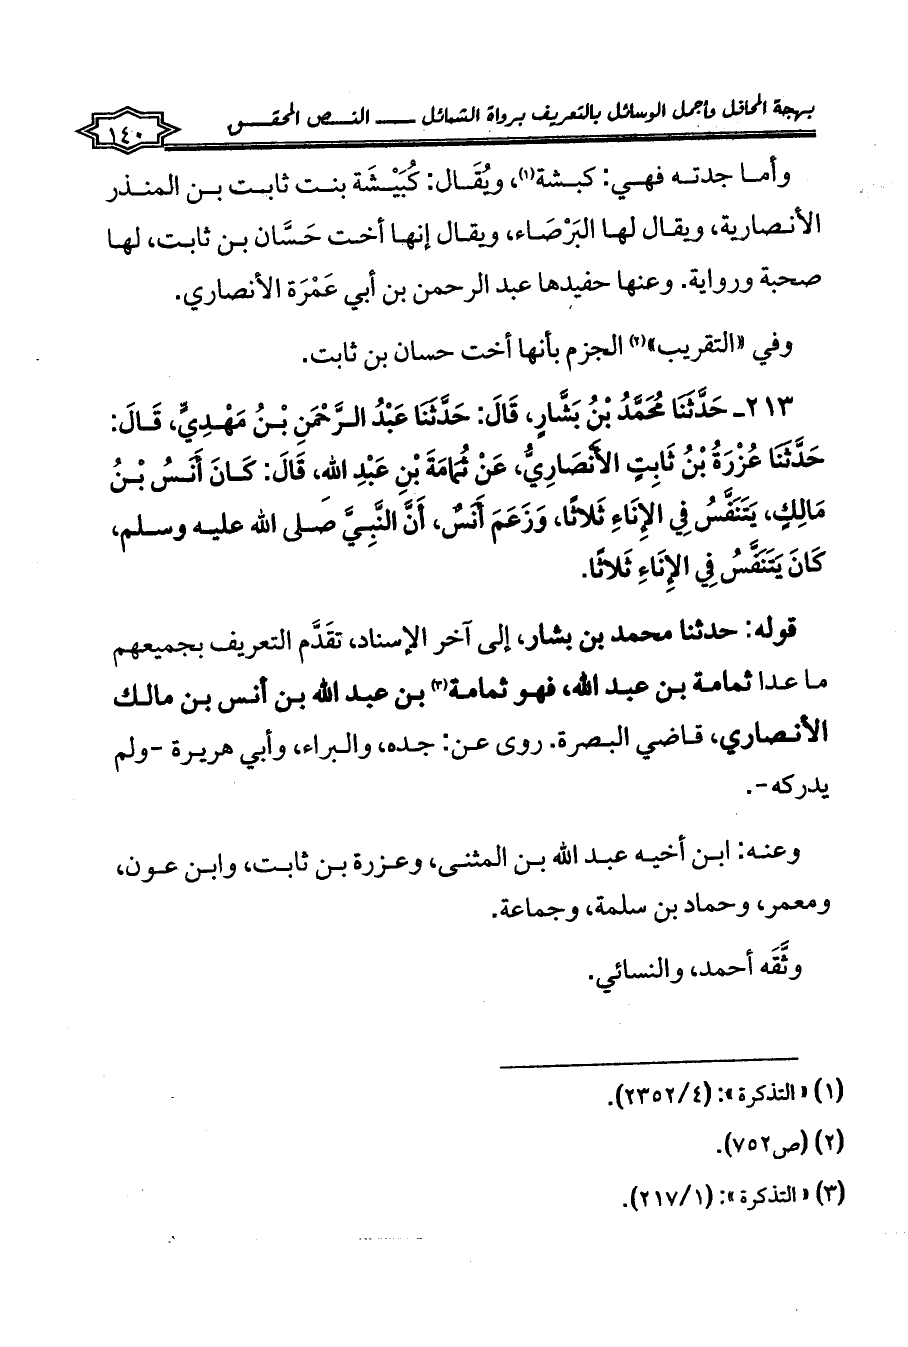 بهجة المحافل وأجمل الوسائل بالتعريف برواة الشمائل ــــ النـــص المحقـــق
١٤٠
وأمـا جدتـه فهـي: كبـشة(١)، ويُقَـال: كُبَيْشَة بنـت ثابـت بـن المنـذر
الأنـصارية، ويقـال لهـا البَرْصَـاء، ويقـال إنهـا أخـت حَسَّان بـن ثابـت، لهـا
صحبة ورواية. وعنهـا حفيدهـا عبـد الرحمن بـن أبي عَمْرَة الأنـصاري.
وفي «التقريب»(٢) الجزم بأنها أخت حسان بن ثابت.
٢١٣ـ حَدَّثَنَا مُحَمَّدُ بْنُ بَشَّارٍ، قَالَ: حَدَّثَنَا عَبْدُ الـرَّحْمَنِ بْـنُ مَهْـدِيٍّ، قَـالَ:
حَدَّثَنَا عُزْرَةُ بْنُ ثَابِتٍ الأَنْصَارِيُّ، عَنْ ثُمَامَةَ بْنِ عَبْدِ الله، قَالَ: كَـانَ أَنَـسُ بْـنُ
مَالِكٍ، يَتَنَفَّسُ فِي الإِنَاءِ ثَلاثًا، وَزَعَمَ أَنَسٌ، أَنَّ النَّبِيَّ صَلى الله عليـه وسـلم،
كَانَ يَتَنَفَّسُ فِي الإِنَاءِ ثَلاثًا.
قوله: حدثنا محمد بن بشار، إلى آخر الإسناد، تقَدَّم التعريف بجميعهم
ما عـدا ثمامـة بـن عبـد الله، فهـو ثمامـة(٣) بـن عبـد الله بـن أنـس بـن مالـك
الأنـصاري، قـاضي البـصرة. روى عـن: جـده، والـبراء، وأبي هريـرة -ولم
يدركه-.
وعنـه: ابـن أخيـه عبـد الله بـن المثنـى، وعـزرة بـن ثابـت، وابـن عـون،
ومعمر، وحماد بن سلمة، وجماعة.
وثَّقَه أحمد، والنسائي.
(١) «التذكرة»: (٤/ ٢٣٥٢).
(٢) (ص٧٥٢).
(٣) «التذكرة»: (١/ ٢١٧).